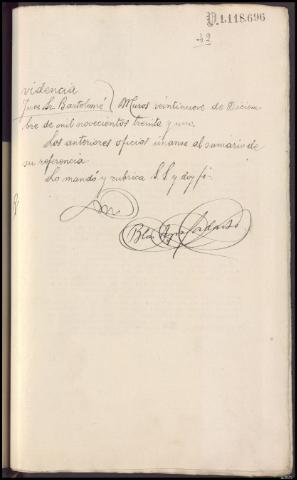 D.1.118.696
42
videncia
Juez Sr Bartolomé } Muros veintinueve de Diciem-
bre de mil novecientos treinta y uno.
Los anteriores oficios únanse al sumario de
su referencia.
Lo mandó y rubrica S.S. y doy fé.
Blas